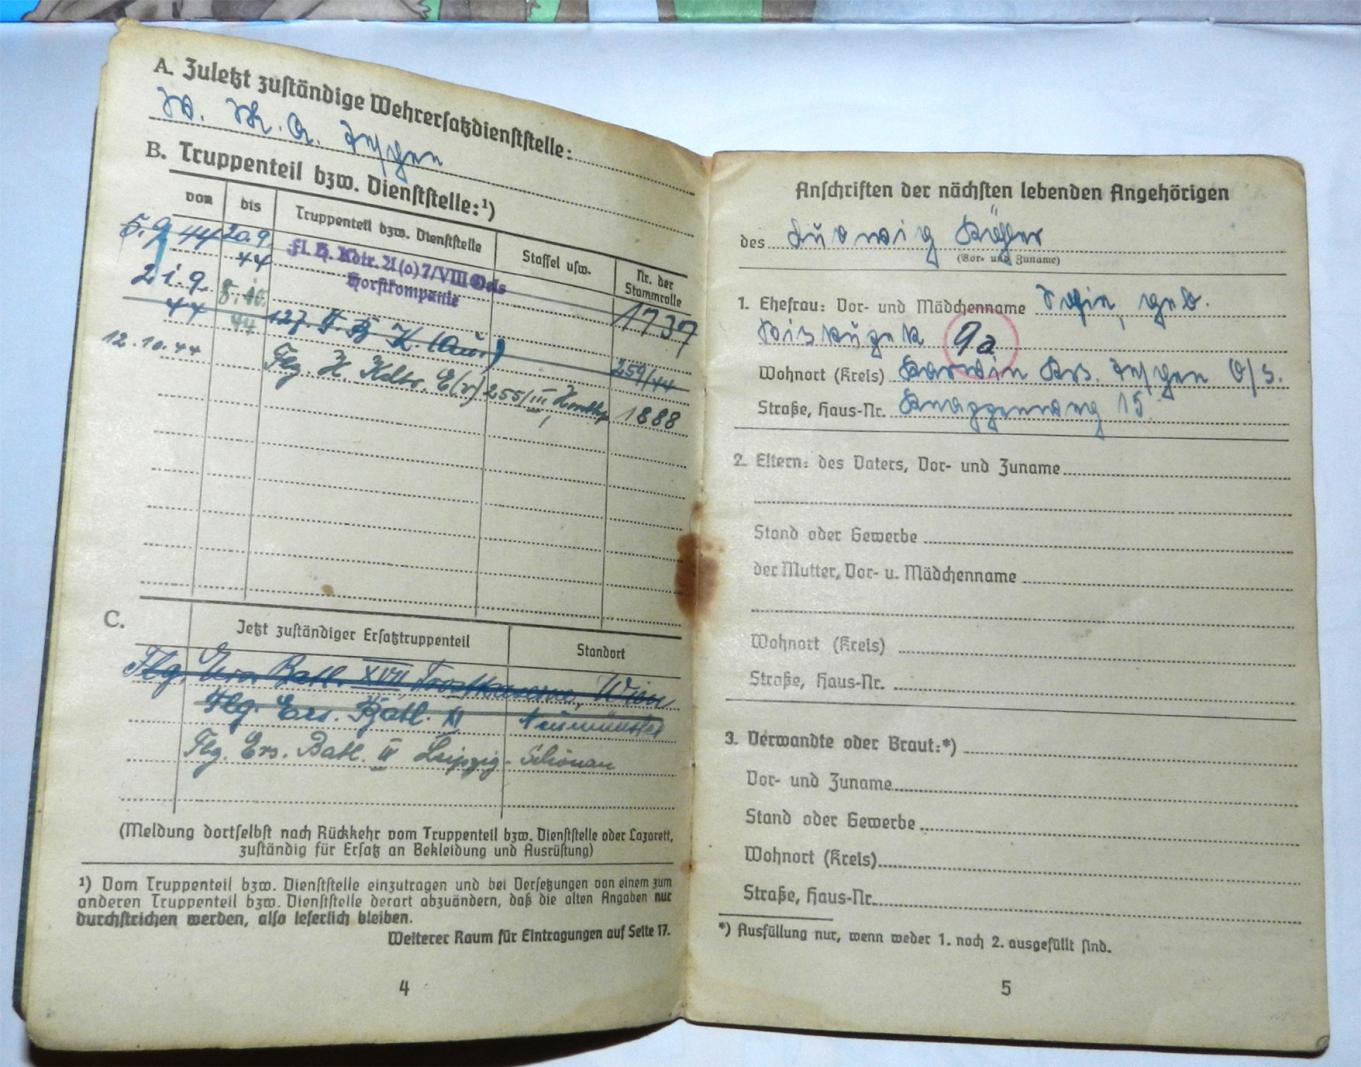 A. Zuletzt zuständige Wehrersatzdienststelle:
W. M. A. Teschen
B. Truppenteil bzw. Dienststelle:¹)
vom bis Truppenteil bzw. Dienststelle Staffel usw. Nr. der Stammrolle
5.9.44 20.9.44 Fl. H. Kdtr. A(o) 7/VIII Oels
Horstkompanie 1737
21.9.44 8.10.44 127. 259/44
12.10.44 Flg. H. Kdtr. E(v) 255/III 1888
C. Jetzt zuständiger Ersatztruppenteil Standort
Flg. Ers. Batl. XVII Wien
Flg. Ers. Batl. XI Neumünster
Flg. Ers. Batl. IV Leipzig-Schönau
(Meldung dortselbst nach Rückkehr vom Truppenteil bzw. Dienststelle oder Lazarett,
zuständig für Ersatz an Bekleidung und Ausrüstung)
¹) Vom Truppenteil bzw. Dienststelle einzutragen und bei Versetzungen von einem zum
anderen Truppenteil bzw. Dienststelle derart abzuändern, daß die alten Angaben nur
durchstrichen werden, also leserlich bleiben.
Weiterer Raum für Eintragungen auf Seite 17.
4
Anschriften der nächsten lebenden Angehörigen
des Ludwig
(Vor- und Zuname)
1. Ehefrau: Vor- und Mädchenname geb.
9a
Wohnort (Kreis) Karwin Krs. Teschen O/S.
Straße, Haus-Nr. Knappenweg 15
2. Eltern: des Vaters, Vor- und Zuname
Stand oder Gewerbe
der Mutter, Vor- u. Mädchenname
Wohnort (Kreis)
Straße, Haus-Nr.
3. Verwandte oder Braut:*)
Vor- und Zuname
Stand oder Gewerbe
Wohnort (Kreis)
Straße, Haus-Nr.
*) Ausfüllung nur, wenn weder 1. noch 2. ausgefüllt sind.
5